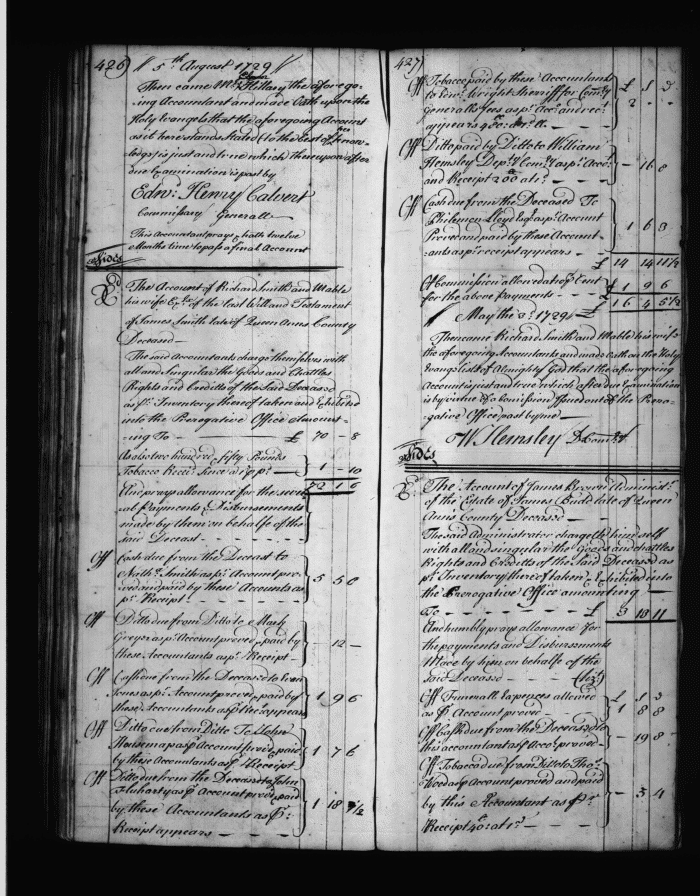 426
5th August 1729
Then came Mrs Eleanor Hillary the afore go-
ing Accountant and made Oath upon the
Holy Evangels that the aforegoing Account
as it here stands Stated (to the best of her know-
ledge) is just and true which thereupon after
due Examination is past by
Edwd. Henry Calvert
Commissary Generall
This Accountant prays & hath twelve
Months time to pass a final Account
The Account of Richard Smith and Mable
his wife Exrs. of the last Will and Testament
of James Smith late of Queen Anns County
Deceased
The said Accountants charge themselves with
all and Singular the Goods and Chattles
Rights and Creditts of the said Deceased
as pr. Inventory thereof taken and Exhibited
into the Prerogative Office amount-
ing To £ 70 - 8
As also two hundred fifty Pounds
Tobacco Receid. since at 1d pr. 1 - 10
And prays allowance for the seve-
ral Payments & Disbursements
made by them on behalfe of the
said Deceast
Off Cash due from the Deceast to
Nathl. Smith as pr. Account pro-
ved and paid by these Accountants as
pr. Receipt 5 5 0
Off Ditto due from Ditto to Mark
as pr. Account proved & paid by
these Accountants as pr. Receipt - 12 -
Off Cash due from the Deceased to
Jones as pr. Account proved & paid by
these Accountants as pr. Rect. appears 1 9 6
Off Ditto due from Ditto To John
as pr. Account proved & paid
by these Accountants as pr. Receipt 1 7 6
Off Ditto due from the Deceased to John
Fluharty as pr. Account proved & paid
by these Accountants as pr.
Receipt appears 1 18
427
Off Tobacco paid by these Accountants £ S D
to Wright Sherriff for County
Generalls fees as pr. Acct. and rect.
appears 2
Off Ditto paid by Ditto to William
Hemsley Depty. Comry. as pr. Acct.
and Receipt 200 at 1d - 16 8
Off Cash due from the Deceased To
Philemon Lloyd Esqr. as pr. Account
Proved and paid by these Account-
ants as pr. receipt appears 1 6 3
£ 14 14 11 1/2
Of Commission allowed at 10 pr. Cent
for the above Payments £ 1 9 6
£ 16 4 5 1/2
May the 2d. 1729
Then came Richard Smith and Mable his wife
the aforegoing Accountants and made Oath on the Holy
Evangelists of Almighty God that the aforegoing
Account is just and true which after due Examination
is by virtue of a Comission of the Prero-
gative Office past by me
W. Hemsley D Comry.
The Account of James Brown Administr.
of the Estate of James Budd late of Queen
Anns County Deceased
The said Administrator chargeth himself
with all and singular the Goods and chattles
Rights and Creditts of the Said Deceased as
pr. Inventory thereof taken & Exhibited into
the Prerogative Office amounting
To £ 3 13 11
And humbly prays allowance for
the payments and Disbursements
Made by him on behalfe of the
said Deceased (Vizt.)
Off Funerall Expences allowed £ S D
as pr. Account proved 1 8 8
Off Cash due from the Deceased to
this accountant as pr. Acct. proved - 19 8
Off Tobacco due from Ditto to Thos.
as pr. Account proved and paid
by this Accountant as pr.
Receipt 40 at 1d - 3 4